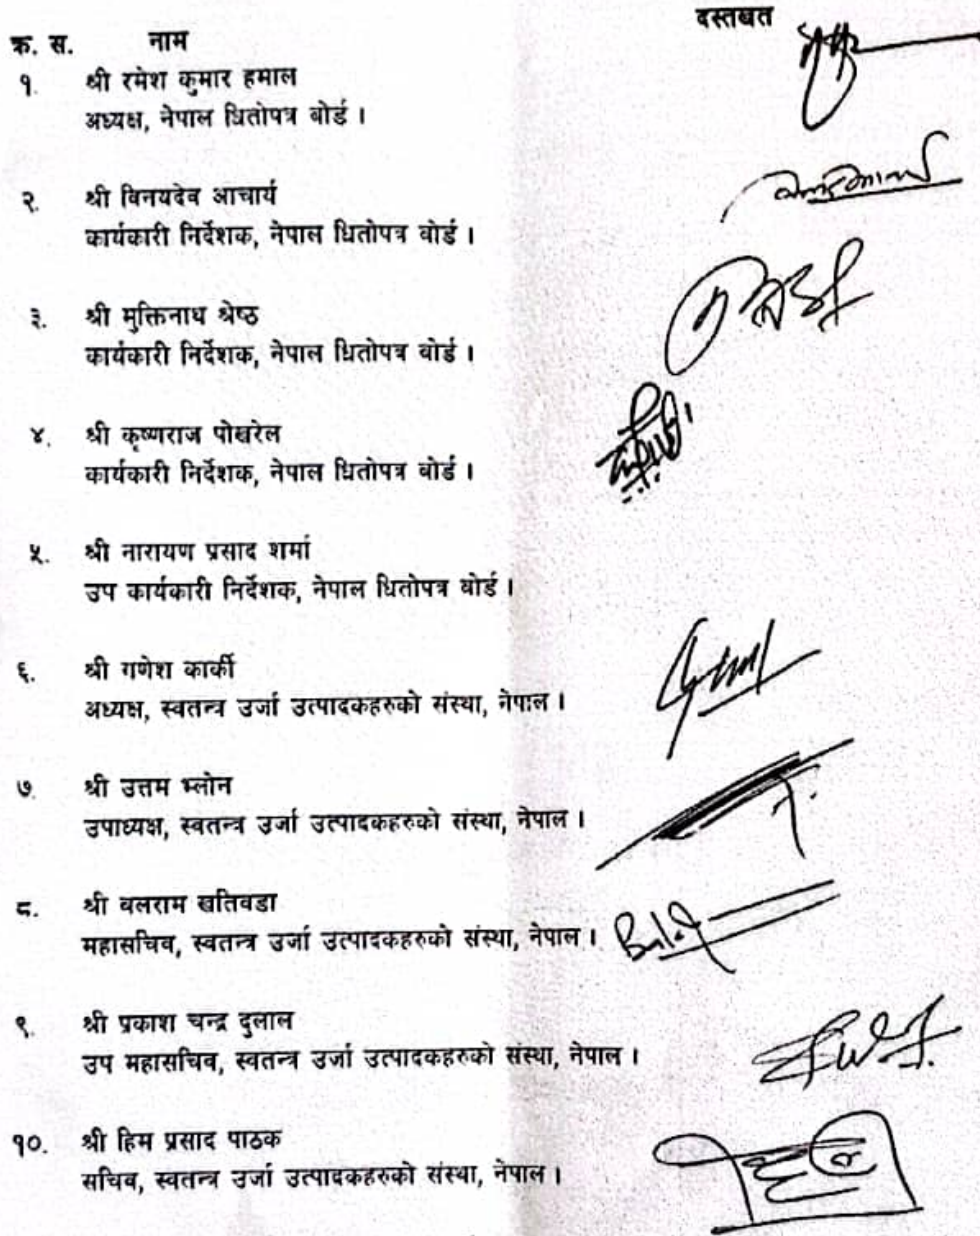 क्र. स. नाम दस्तखत
१. श्री रमेश कुमार हमाल
अध्यक्ष, नेपाल धितोपत्र बोर्ड ।
२. श्री विनयदेव आचार्य
कार्यकारी निर्देशक, नेपाल धितोपत्र बोर्ड ।
३. श्री मुक्तिनाथ श्रेष्ठ
कार्यकारी निर्देशक, नेपाल धितोपत्र बोर्ड ।
४. श्री कृष्णराज पोखरेल
कार्यकारी निर्देशक, नेपाल धितोपत्र बोर्ड ।
५. श्री नारायण प्रसाद शर्मा
उप कार्यकारी निर्देशक, नेपाल धितोपत्र बोर्ड ।
६. श्री गणेश कार्की
अध्यक्ष, स्वतन्त्र उर्जा उत्पादकहरुको संस्था, नेपाल ।
७. श्री उत्तम भ्लोन
उपाध्यक्ष, स्वतन्त्र उर्जा उत्पादकहरुको संस्था, नेपाल ।
८. श्री बलराम खतिवडा
महासचिव, स्वतन्त्र उर्जा उत्पादकहरुको संस्था, नेपाल ।
९. श्री प्रकाश चन्द्र दुलाल
उप महासचिव, स्वतन्त्र उर्जा उत्पादकहरुको संस्था, नेपाल ।
१०. श्री हिम प्रसाद पाठक
सचिव, स्वतन्त्र उर्जा उत्पादकहरुको संस्था, नेपाल ।